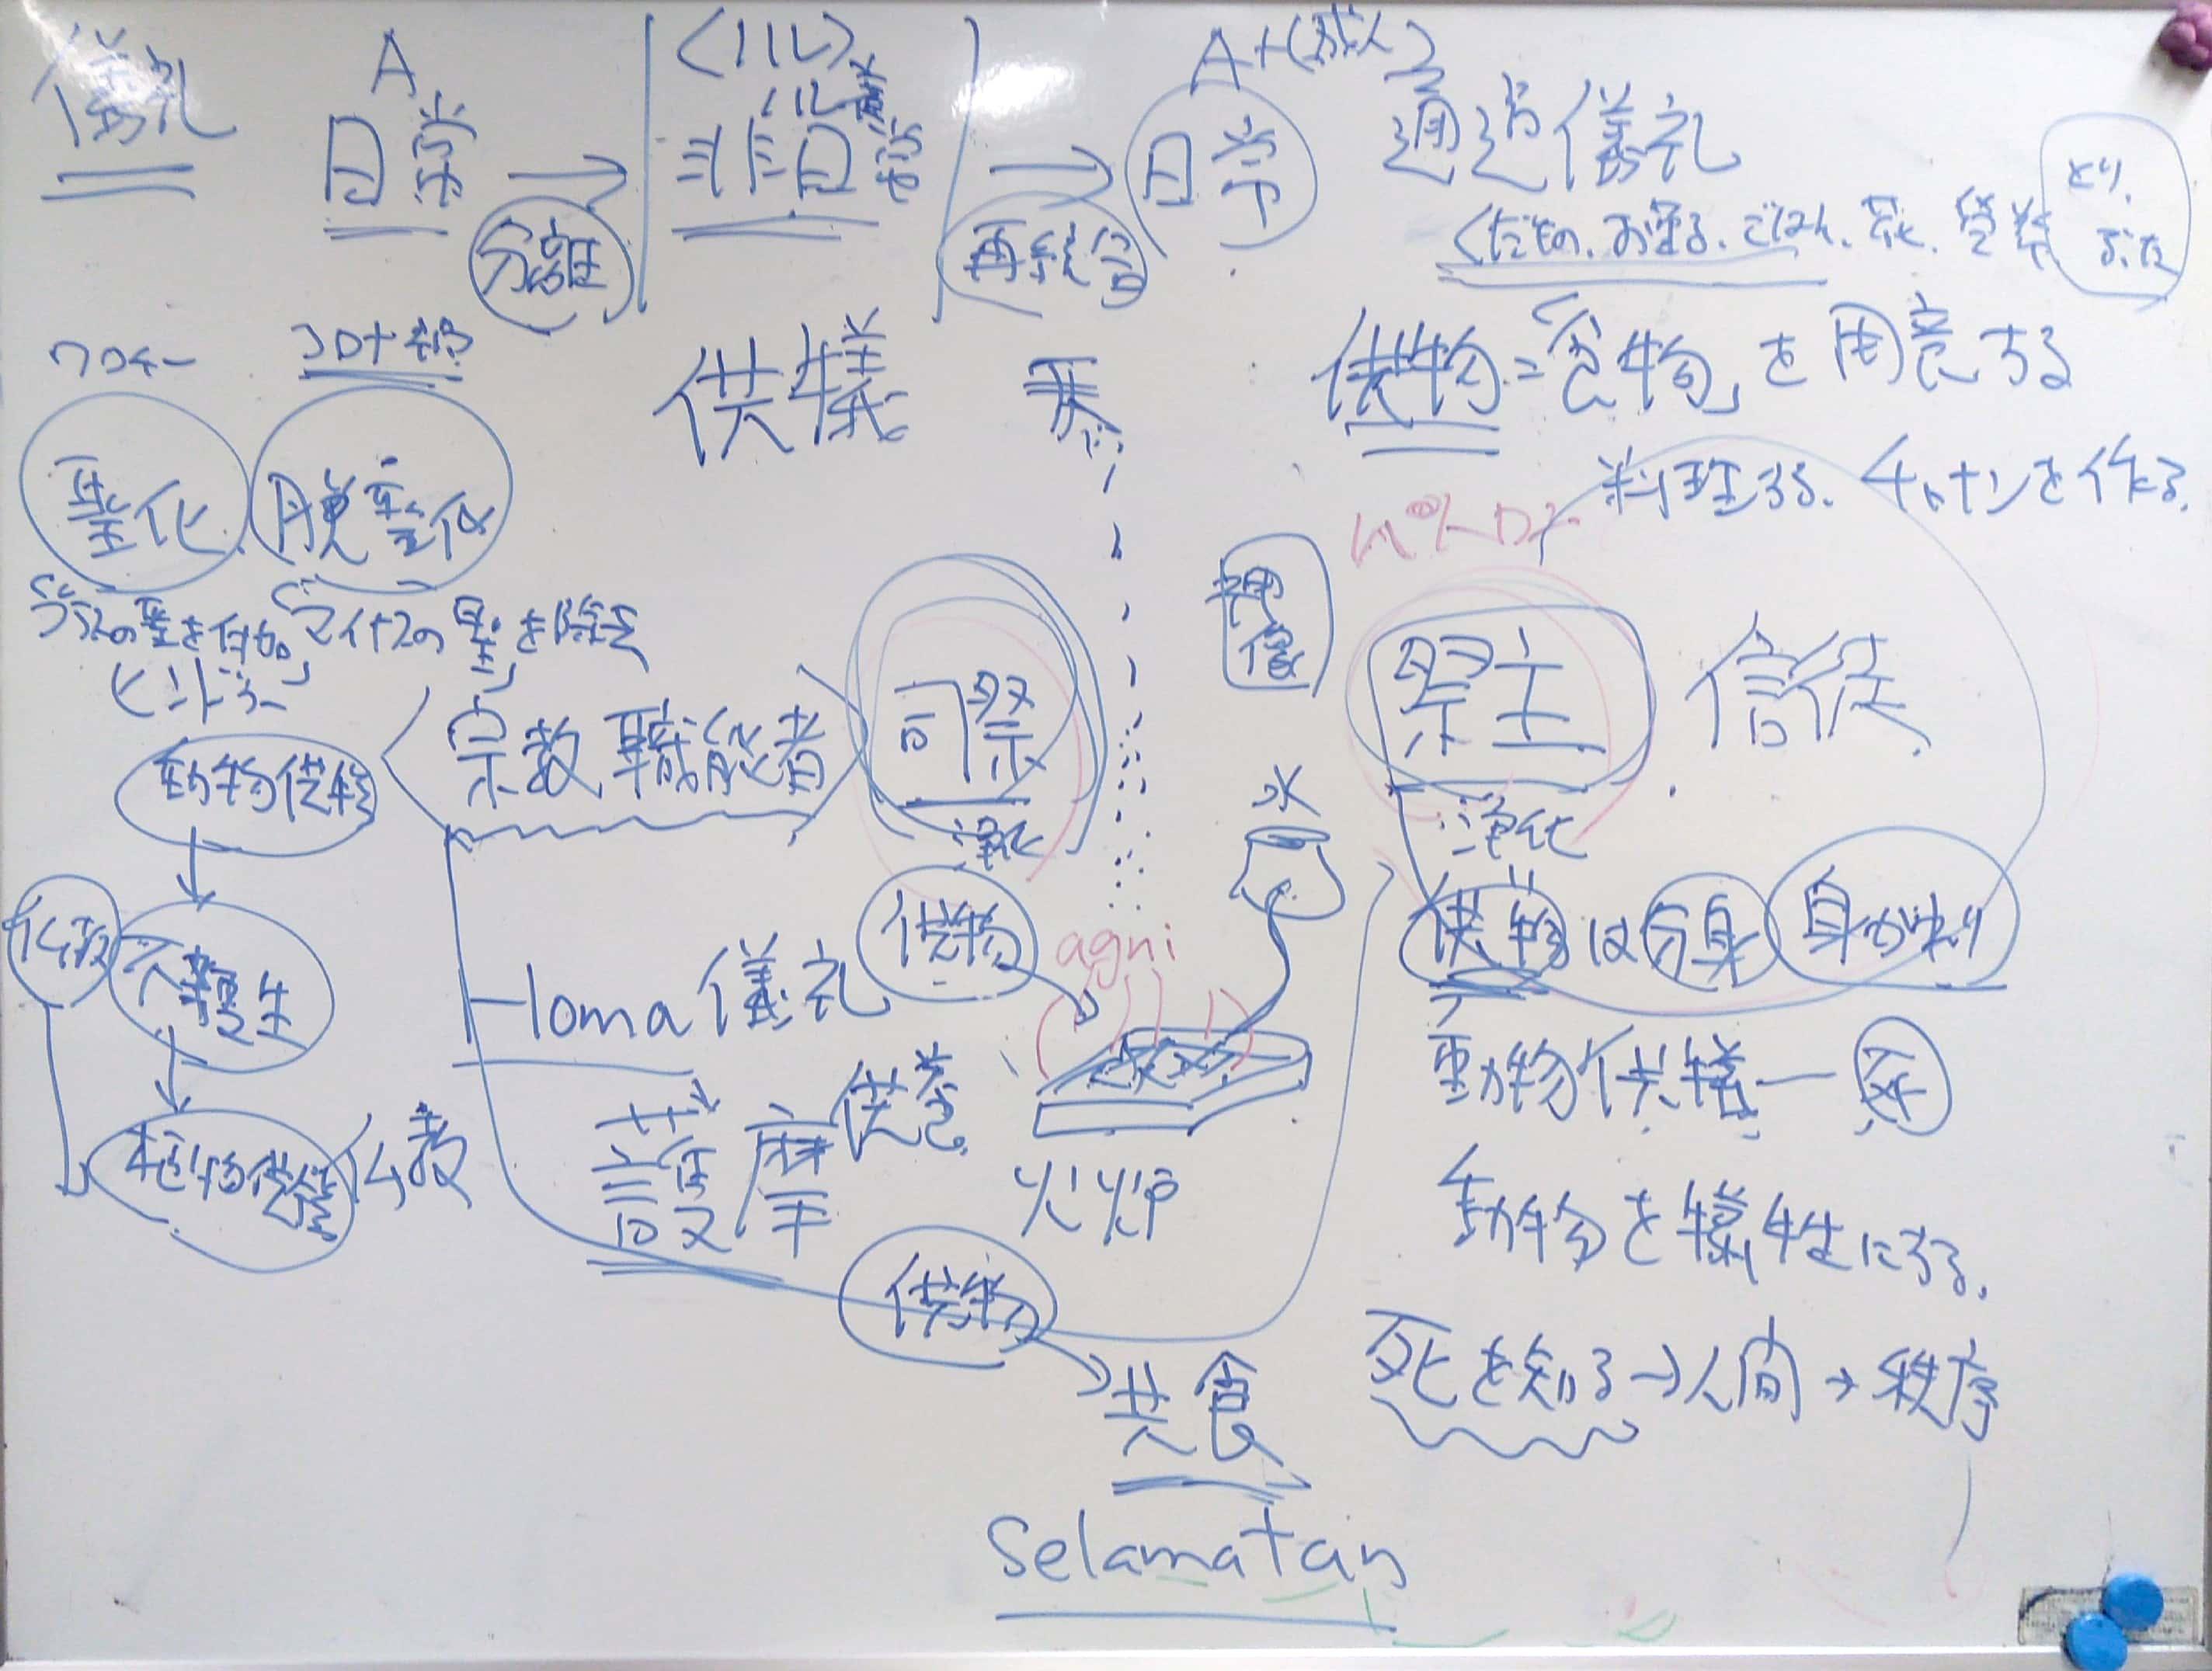 儀礼
A
日常
分離
〈ハレ〉
非日常
再統合
A+(成人)
日常
通過儀礼
くだもの、お金、ごはん、花、
とり、
ぶた
供物=「食物」を用意する
料理する、チャナンを作る。
コロナ禍
供犠
聖化
脱聖化
プラスの聖を付加
マイナスの聖を除去
ヒンドゥー
動物供犠
宗教職能者
司祭
浄化
神像
祭主
信徒
浄化
水
供物は分身
身がわり
仏教
不殺生
植物供犠
仏教
Homa儀礼
供物
agni
護摩
供養
火炉
動物供犠
動物を犠牲にする。
供物
共食
死を知る→人間→秩序
Selamatan